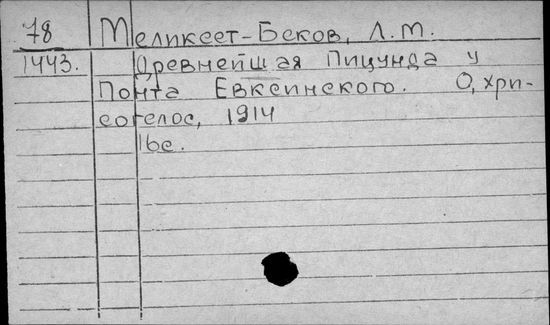 78 Меликсет-Беков, Л.М.
1443. Древнейшая Пицунда у
Понта Евксинского. О, хри-
сотелос, 1914
16с.